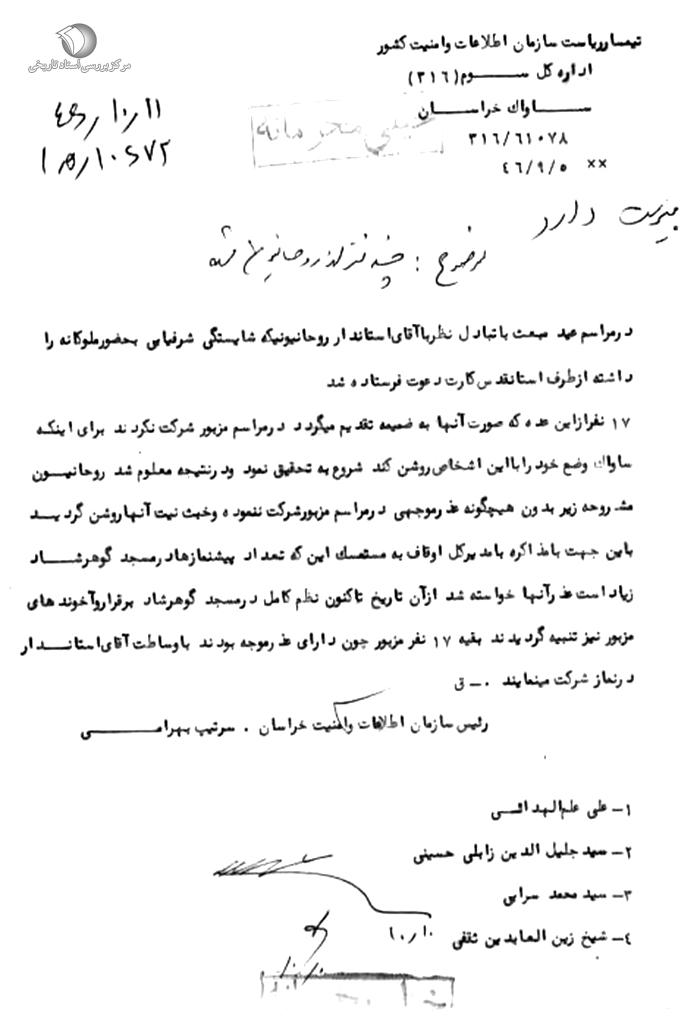 مرکز بررسی اسناد تاریخی
تیمسار ریاست سازمان اطلاعات وامنیت کشور
اداره کل ســـوم (۳۱٦)
ســـاواک خراســـان
خیلی محرمانه
۳۱٦/٦۱۰۷۸
×× ٤٦/۹/۵
پیوست دارد
موضوع : چند نفر از روحانیون مشهد
درمراسم عید مبعث باتبادل نظرباآقای استاندار روحانیونیکه شایستگی شرفیابی بحضورملوکانه را
داشته ازطرف استانقدس کارت دعوت فرستاده شد
۱۷ نفرازاین عده که صورت آنها به ضمیمه تقدیم میگردد درمراسم مزبور شرکت نکردند برای اینکه
ساواک وضع خود رابااین اشخاص روشن کند شروع به تحقیق نمود ودرنتیجه معلوم شد روحانیـــون
مشروحه زیر بدون هیچگونه عذرموجهی درمراسم مزبورشرکت ننموده وخبث نیت آنهاروشن گردیـــد
باین جهت بامذاکره بامدیرکل اوقاف به مستمسک این که تعداد پیشنمازهادرمسجد گوهرشـــاد
زیاد است عذرآنها خواسته شد ازآن تاریخ تاکنون نظم کامل درمسجد گوهرشاد برقراروآخوندهای
مزبور نیز تنبیه گردیدند بقیه ۱۷ نفر مزبور چون دارای عذرموجه بودند باوساطت آقای استانـــدار
درنماز شرکت مینمایند ۰ـ ق
رئیس سازمان اطلاعات وامنیت خراسان . سرتیپ بهرامـــی
۱ـ علی علم الهدائـــی
۲ـ سید جلیل الدین زابلی حسینی
۳ـ سید محمد سرابی
٤ـ شیخ زین العابدین ثقفی
۱۰/۱۰
۱۰/۱۰